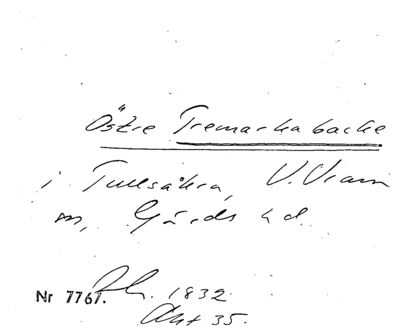 Östre Tremarkabacke
i Tullsåkra, V. Vram
sn, Gärds hd.
Nr 7767. 1832
Akt 35.